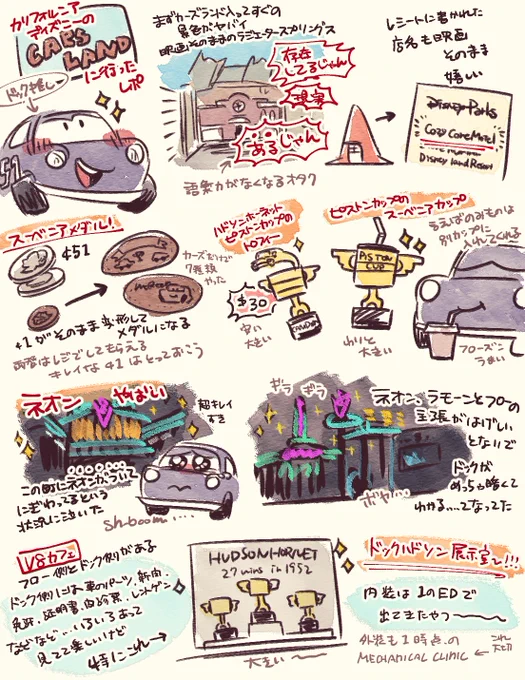 カリフォルニア
ディズニーの
CARS
LAND
に行った
レポ
ドック推し→
まずカーズランド入ってすぐの
景色がヤバイ
映画そのままのラジエータースプリングス
存在
してるじゃん
現実
あるじゃん
語彙力がなくなるオタク
レシートに書かれた
店名も映画
そのまま
嬉しい
Disney Parks
Cozy Cone Motel
Disneyland Resort
スーベニアメダル!
¢51
カーズだけで
7種類
やった
¢1がそのまま変形して
メダルになる
両替はレジでしてもらえる
キレイな¢1はとっておこう
ハドソンホーネット
ピストンカップの
トロフィー
$30
安い
大きい
ピストンカップの
スーベニアカップ
PISTON
CUP
わりと
大きい
のみものは
別カップに
入れてくれる
フローズン
うまい
51
ネオン
やばい
超キレイ
すき
この町にネオンがついて
にぎわってるという
状況に泣いた
sh-boom....
ギラ
ギラ
ボヤ...
ネオン、ラモーンとフローの
主張がはげしい
となりで
ドックが
めっちゃ暗くて
わかる....てなってた
V8カフェ
フロー側とドック側がある
ドック側には、車のパーツ、新聞、
免許、証明書、聴診器、レントゲン
などなど...いろいろあって
見てて楽しいけど
特にこれ→
HUDSON HORNET
27 wins in 1952
大きい〜
ドックハドソン展示室〜!!!
内装は1のEDで
出てきたやつ〜
外装も1時点の
MECHANICAL CLINIC
←これ
大切